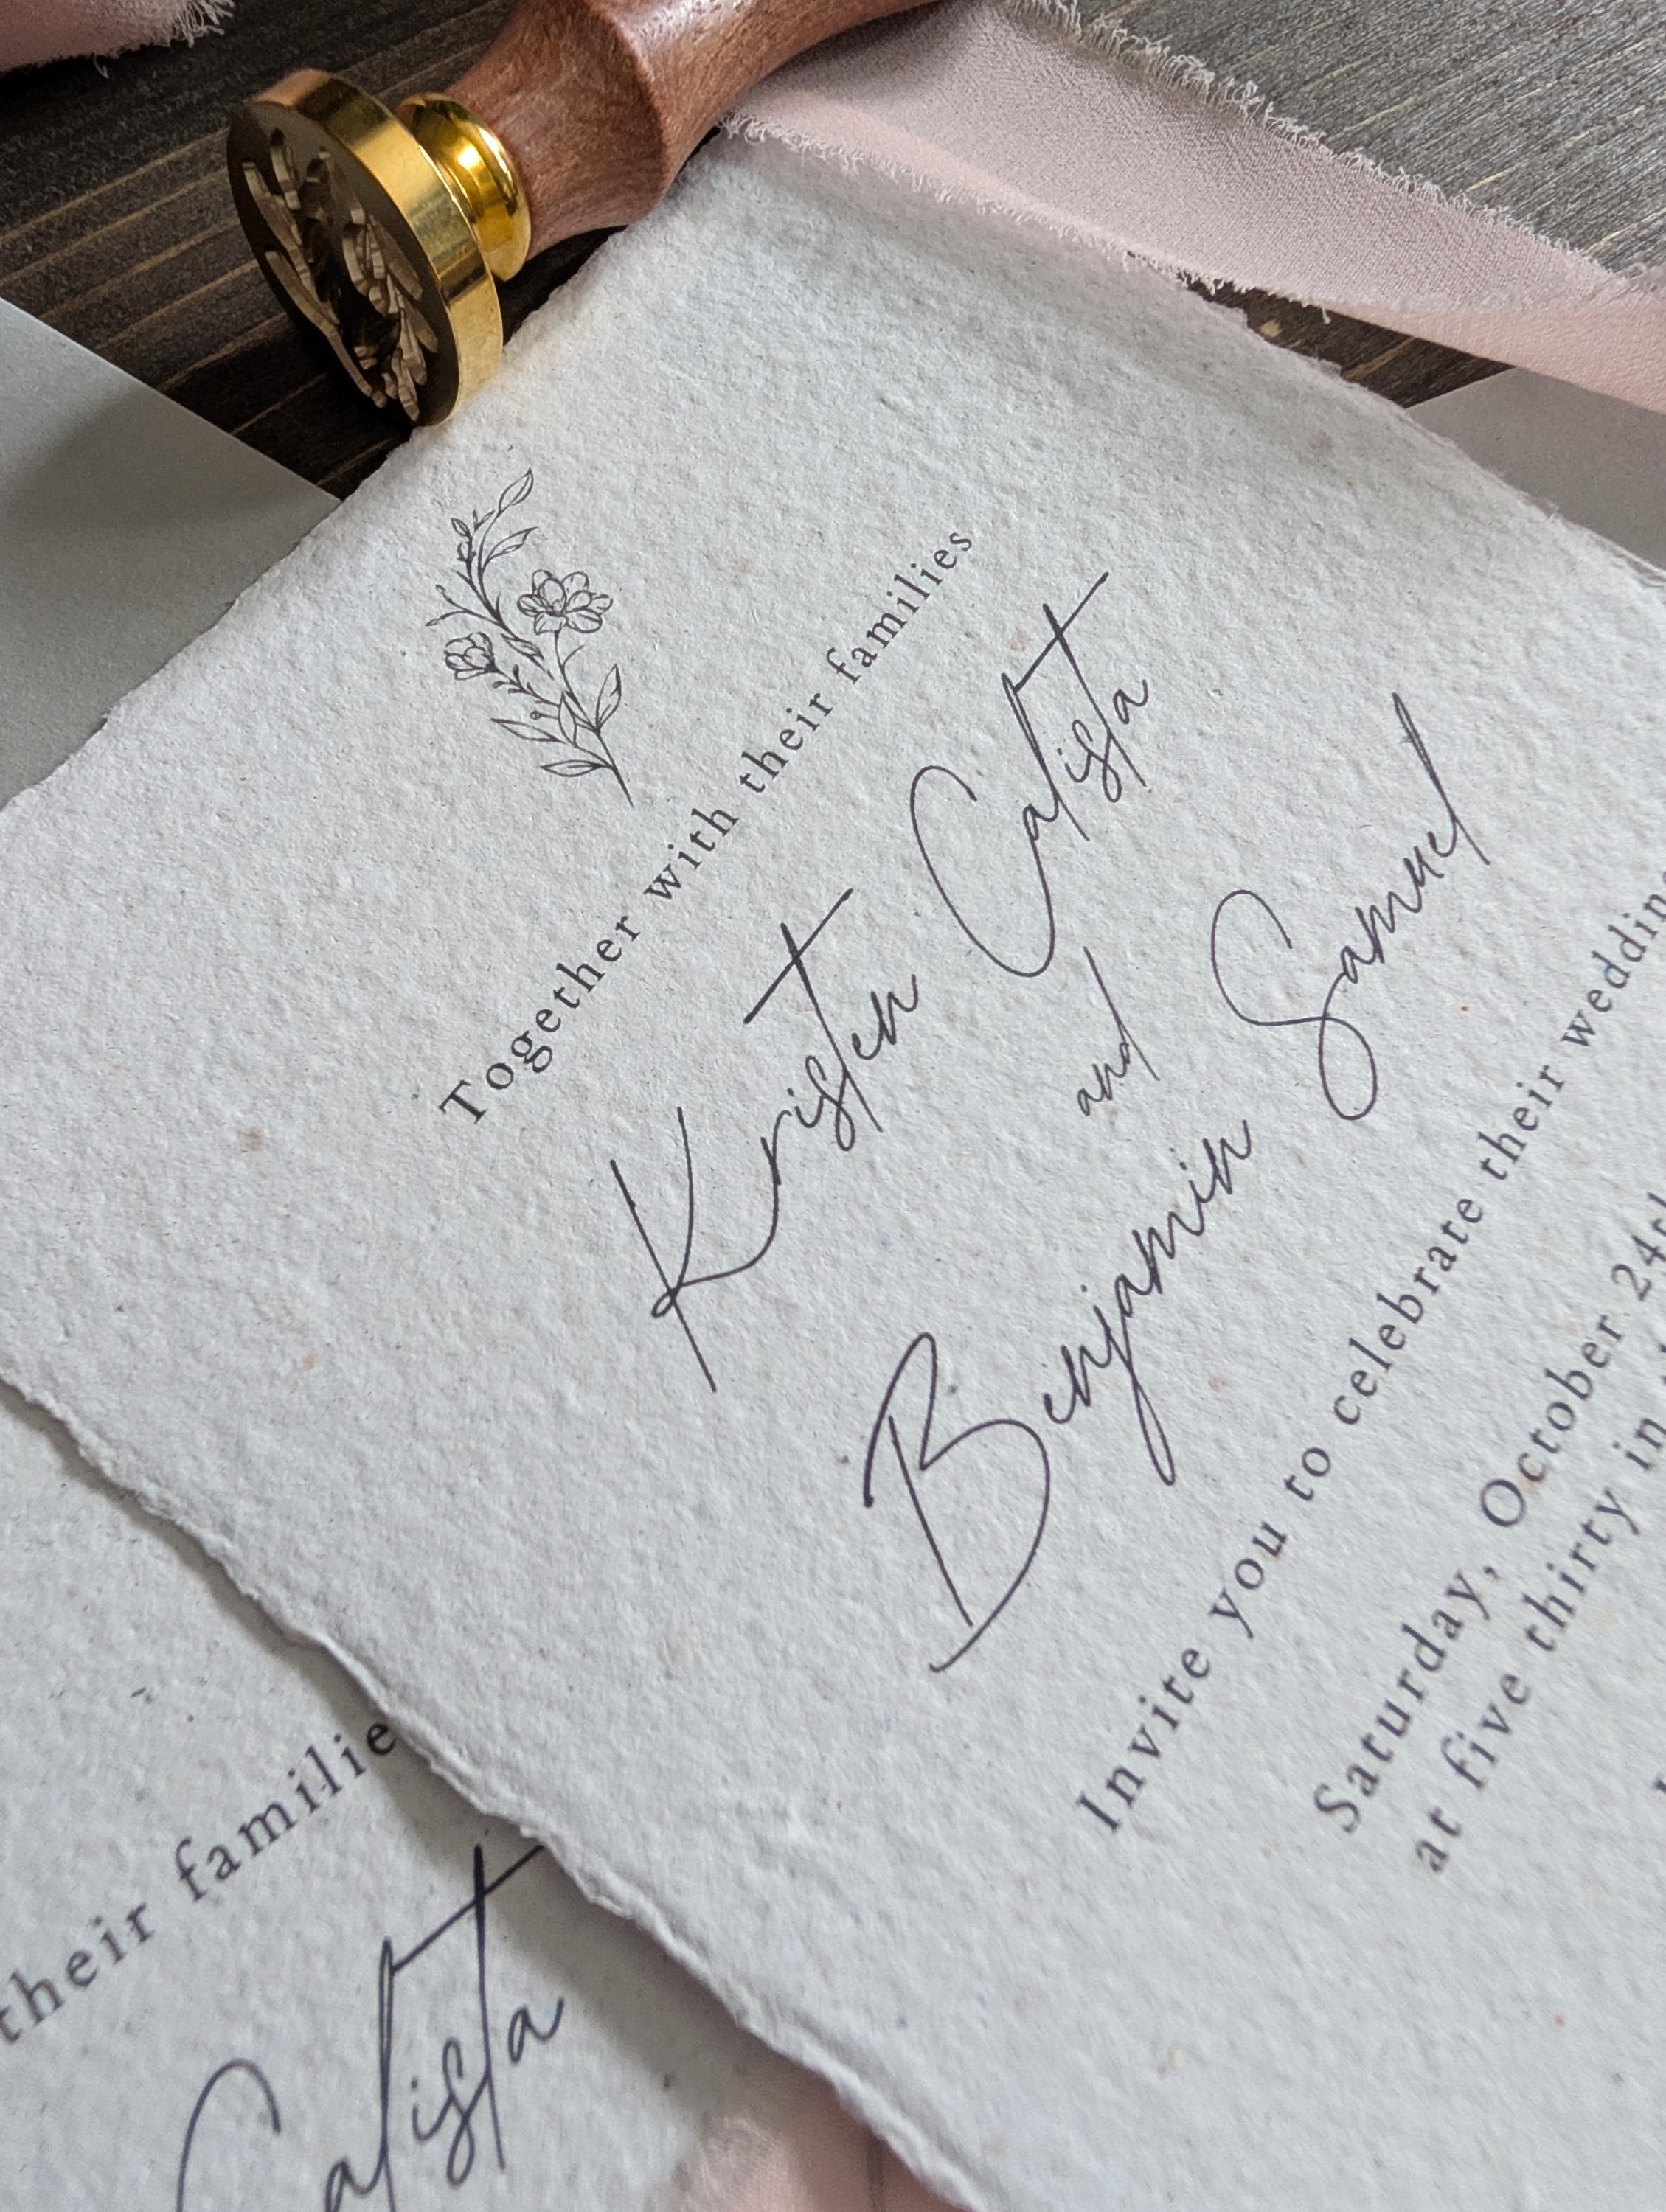 Together with their families
Kristen Calista
and
Benjamin Samuel
Invite you to celebrate their wedding
Saturday, October 24th
at five thirty in
their familie
Calista